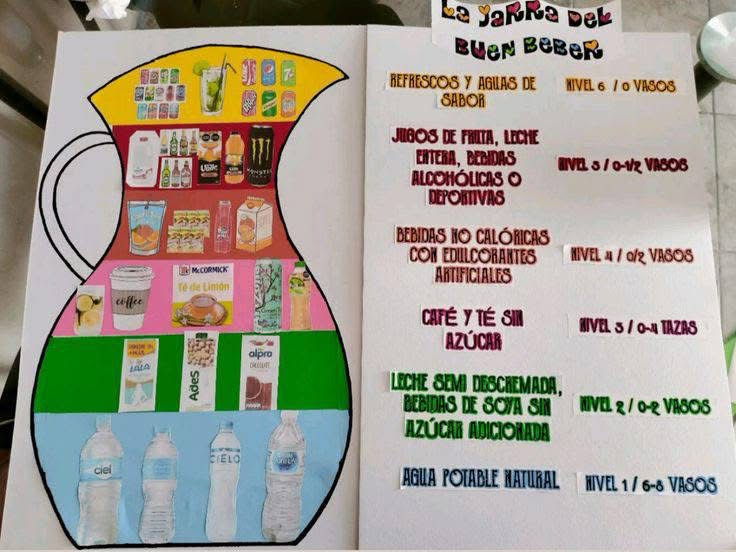 La Jarra del
Buen Beber
REFRESCOS Y AGUAS DE
SABOR
NIVEL 6 / 0 VASOS
JUGOS DE FRUTA, LECHE
ENTERA, BEBIDAS
ALCOHÓLICAS O
DEPORTIVAS
NIVEL 5 / 0-1/2 VASOS
BEBIDAS NO CALÓRICAS
CON EDULCORANTES
ARTIFICIALES
NIVEL 4 / 0/2 VASOS
CAFÉ Y TÉ SIN
AZÚCAR
NIVEL 3 / 0-4 TAZAS
LECHE SEMI DESCREMADA,
BEBIDAS DE SOYA SIN
AZÚCAR ADICIONADA
NIVEL 2 / 0-2 VASOS
AGUA POTABLE NATURAL
NIVEL 1 / 6-8 VASOS
MONSTER
coffee
McCORMICK
Té de Limón
LALA
AdeS
alpro
ciel
CIELO